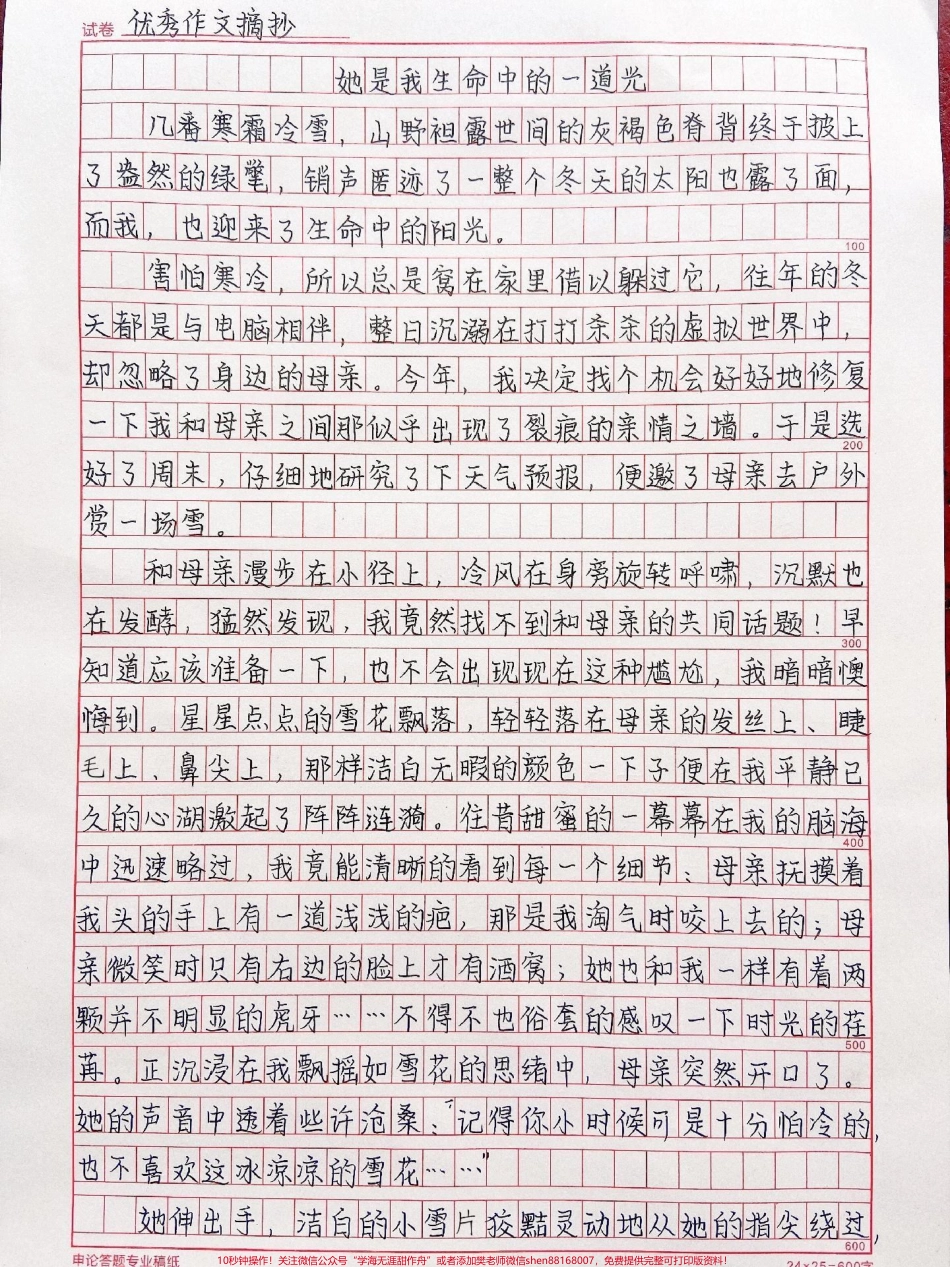 试卷 优秀作文摘抄
她是我生命中的一道光
几番寒霜冷雪，山野袒露世间的灰褐色脊背终于披上
了盎然的绿氅，销声匿迹了一整个冬天的太阳也露了面，
而我，也迎来了生命中的阳光。
100
害怕寒冷，所以总是窝在家里借以躲过它，往年的冬
天都是与电脑相伴，整日沉溺在打打杀杀的虚拟世界中，
却忽略了身边的母亲。今年，我决定找个机会好好地修复
一下我和母亲之间那似乎出现了裂痕的亲情之墙。于是选
200
好了周末，仔细地研究了下天气预报，便邀了母亲去户外
赏一场雪。
和母亲漫步在小径上，冷风在身旁旋转呼啸，沉默也
在发酵，猛然发现，我竟然找不到和母亲的共同话题！早
300
知道应该准备一下，也不会出现现在这种尴尬，我暗暗懊
悔到。星星点点的雪花飘落，轻轻落在母亲的发丝上、睫
毛上、鼻尖上，那样洁白无暇的颜色一下子便在我平静已
久的心湖激起了阵阵涟漪。往昔甜蜜的一幕幕在我的脑海
400
中迅速略过，我竟能清晰的看到每一个细节：母亲抚摸着
我头的手上有一道浅浅的疤，那是我淘气时咬上去的；母
亲微笑时只有右边的脸上才有酒窝；她也和我一样有着两
颗并不明显的虎牙……不得不也俗套的感叹一下时光的荏
500
苒。正沉浸在我飘摇如雪花的思绪中，母亲突然开口了。
她的声音中透着些许沧桑：“记得你小时候可是十分怕冷的，
也不喜欢这冰凉凉的雪花……”
她伸出手，洁白的小雪片狡黠灵动地从她的指尖绕过，
600
申论答题专业稿纸 10秒钟操作！关注微信公众号“学海无涯甜作舟”或者添加樊老师微信shen88168007，免费提供完整可打印版资料！ 24×25=600字